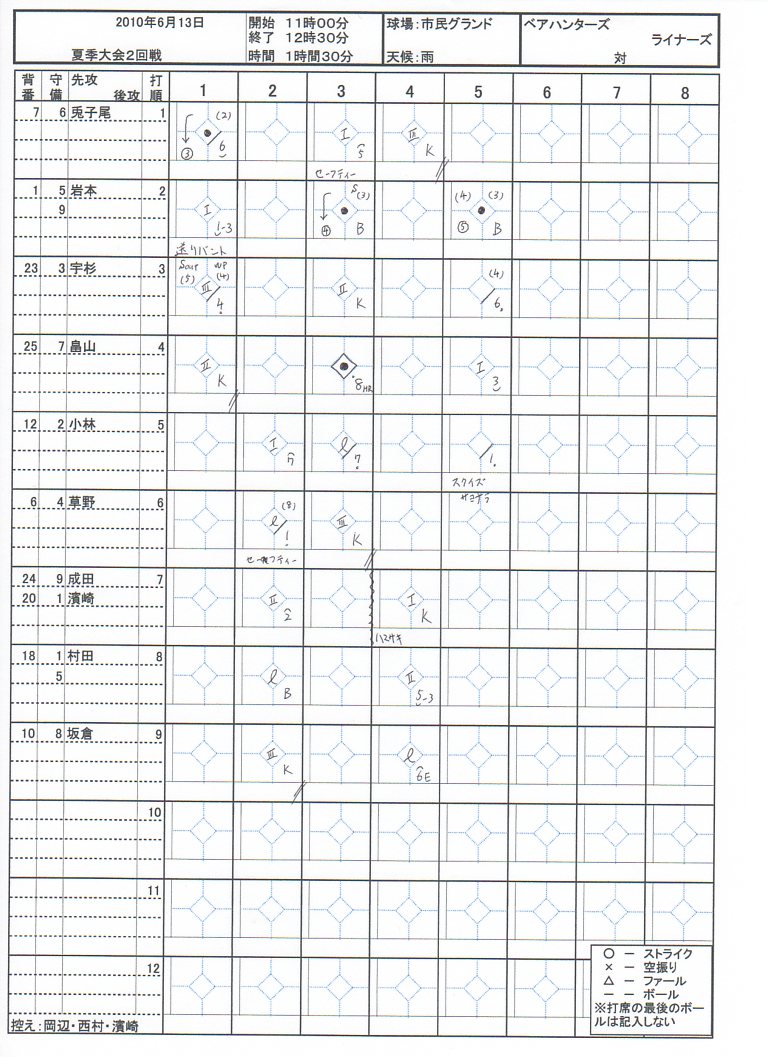 2010年6月13日
夏季大会2回戦
開始 11時00分
終了 12時30分
時間 1時間30分
球場：市民グランド
天候：雨
ベアハンターズ
ライナーズ
対
背番 守備 先攻 後攻 打順 1 2 3 4 5 6 7 8
7 6 兎子尾 1
(2) 6 ③
I 5
III K
セーフティー
1 5 岩本 2
9
I 1-3
S (3) ④ B
(4) (3) ⑤ B
送りバント
23 3 宇杉 3
(5) WP (4) III 4
II K
(4) 6
25 7 畠山 4
II K
8HR
I 3
12 2 小林 5
I 7
l 7
1
スクイズ
サヨナラ
6 4 草野 6
l (8) 1
III K
セーフティー
24 9 成田 7
20 1 濱崎
II 2
I K
ハマサキ
18 1 村田 8
5
l B
II 5-3
10 8 坂倉 9
III K
l 6E
10
11
12
○ － ストライク
× － 空振り
△ － ファール
－ － ボール
※打席の最後のボー
ルは記入しない
控え：岡辺・西村・濱崎